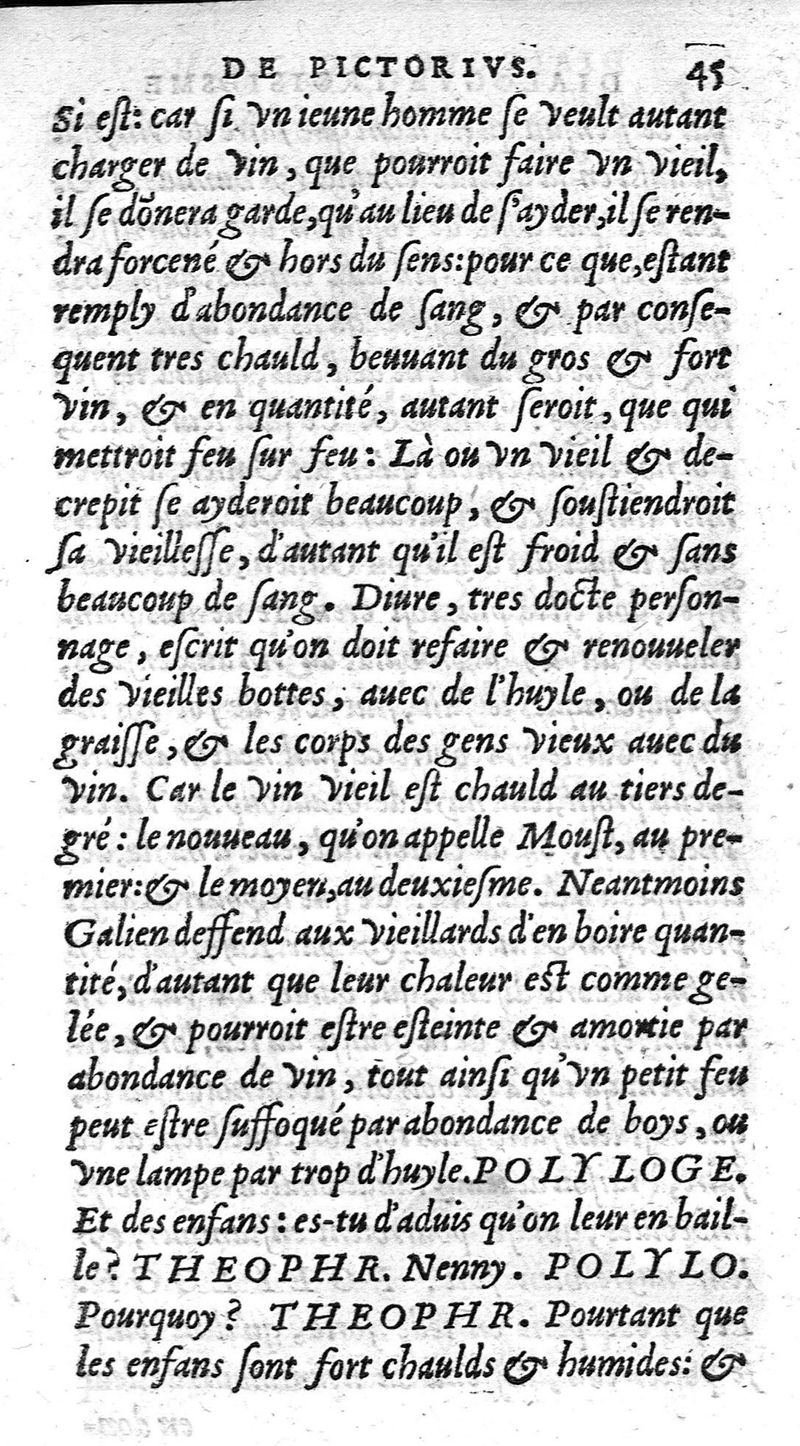 DE PICTORIVS. 45
Si eſt: car ſi vn ieune homme ſe veult autant
charger de vin, que pourroit faire vn vieil,
il ſe dõnera garde, qu'au lieu de ſ'ayder, il ſe ren-
dra forcené & hors du ſens: pour ce que, eſtant
remply d'abondance de ſang, & par conſe-
quent tres chauld, beuuant du gros & fort
vin, & en quantité, autant ſeroit, que qui
mettroit feu ſur feu: Là ou vn vieil & de-
crepit ſe ayderoit beaucoup, & ſouſtiendroit
ſa vieilleſſe, d'autant qu'il eſt froid & ſans
beaucoup de ſang. Diure, tres docte perſon-
nage, eſcrit qu'on doit refaire & renouueler
des vieilles bottes, auec de l'huyle, ou de la
graiſſe, & les corps des gens vieux auec du
vin. Car le vin vieil eſt chauld au tiers de-
gré: le nouueau, qu'on appelle Mouſt, au pre-
mier: & le moyen, au deuxieſme. Neantmoins
Galien deffend aux vieillards d'en boire quan-
tité, d'autant que leur chaleur eſt comme ge-
lée, & pourroit eſtre eſteinte & amortie par
abondance de vin, tout ainſi qu'vn petit feu
peut eſtre ſuffoqué par abondance de boys, ou
vne lampe par trop d'huyle. POLYLOGE.
Et des enfans: es-tu d'aduis qu'on leur en bail-
le? THEOPHR. Nenny. POLYLO.
Pourquoy? THEOPHR. Pourtant que
les enfans ſont fort chaulds & humides: &